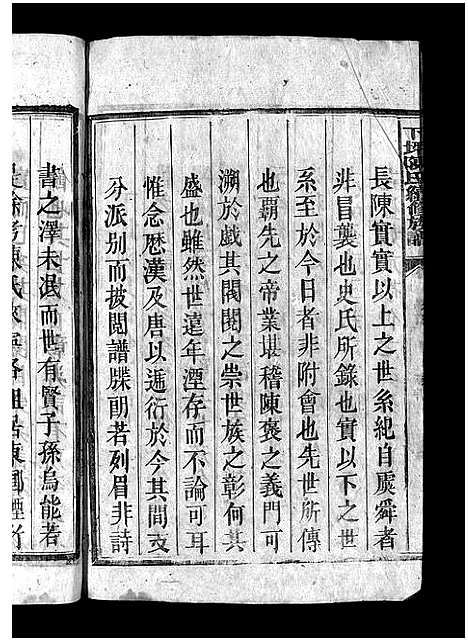 長陳實實以上之世系紀自虞舜者
非冒襲也史氏所錄也實以下之世
系至於今日者非附會也先世所傳
也霸先之帝業堪稽陳褒之義門可
溯於戲其閥閱之崇世族之彰何其
盛也雖然世遠年湮存而不論可耳
惟念歷漢及唐以遞衍於今其間支
分派別而披閱譜牒朗若列眉非詩
書之澤未泯而世有賢子孫烏能若
是